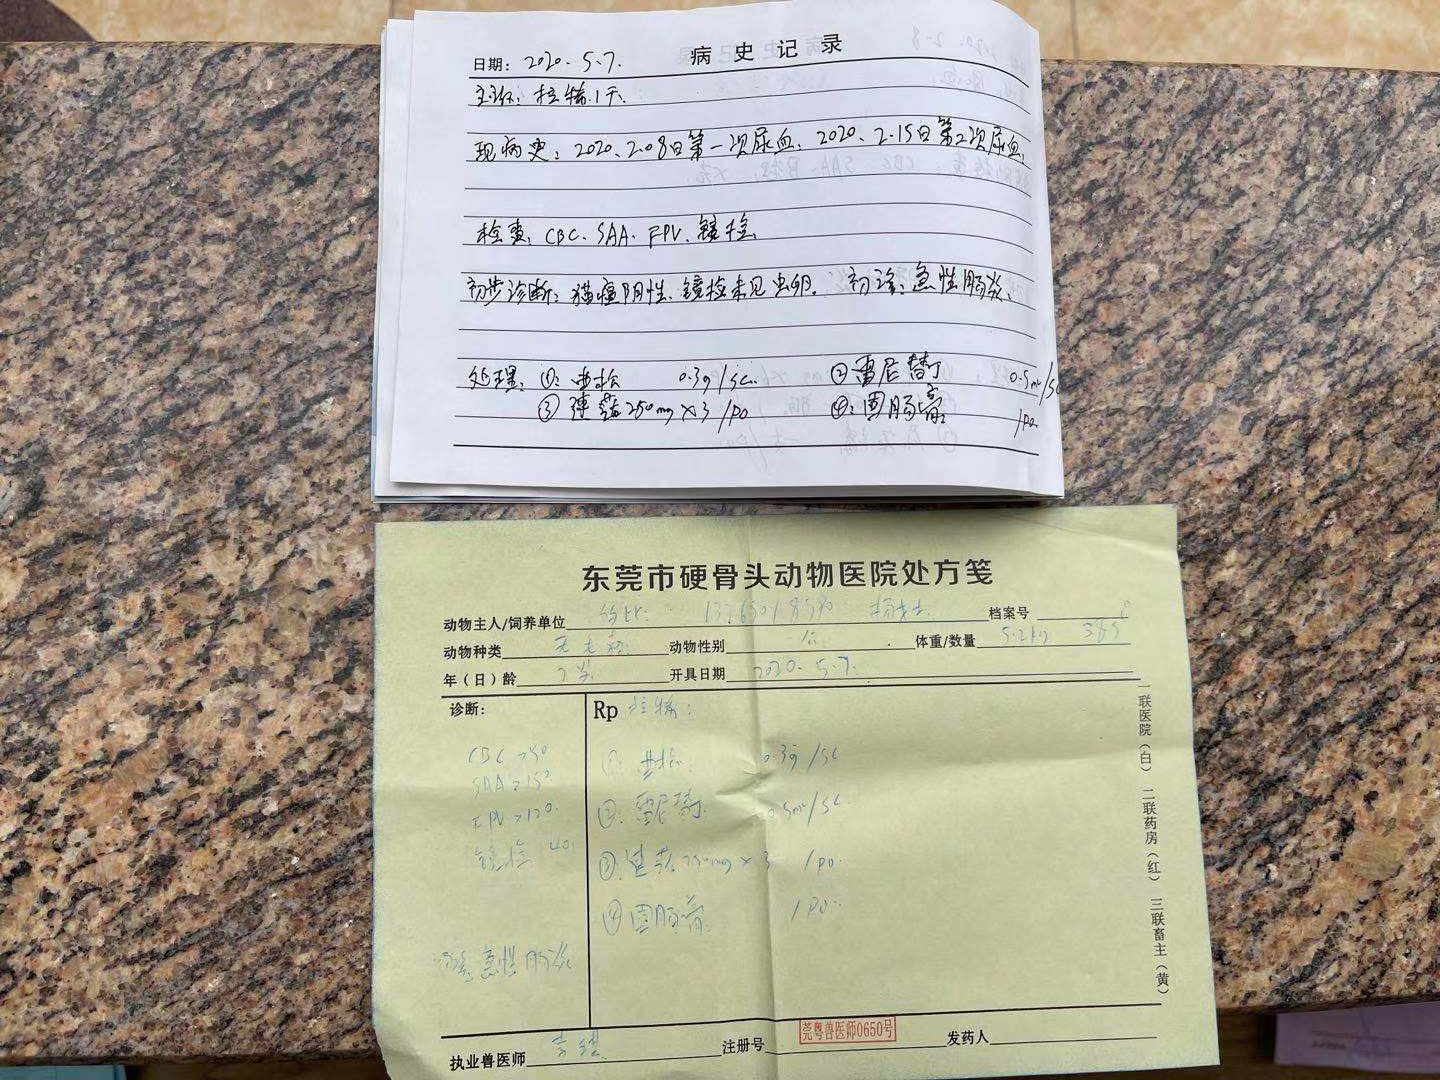 病史记录
日期: 2020.5.7.
主诉: 拉稀.1天.
现病史: 2020.2.08日第一次尿血, 2020.2.15日第二次尿血,
检查: CBC. SAA. FPV. 镜检
初步诊断: 猫瘟阴性. 镜检未见虫卵. 初诊: 急性肠炎.
处理: ①: 0.3g/sc. ②雷尼替丁 0.5ml/sc
③ 250mg×3 /po ④: 固肠膏 /po.
东莞市硬骨头动物医院处方笺
动物主人/饲养单位 档案号
动物种类 动物性别 公. 体重/数量 5.2kg 38.5
年(日)龄 开具日期 2020.5.7.
诊断: Rp 拉稀:
CBC ① 0.3g/sc
SAA ②. 雷尼替丁 0.5ml/sc.
FPV 120 ③ 250mg×3 /po.
镜检 40. ④ 固肠膏 /po.
初诊: 急性肠炎
联医院(白) 二联药房(红) 三联畜主(黄)
执业兽医师 注册号 莞粤兽医师0650号 发药人